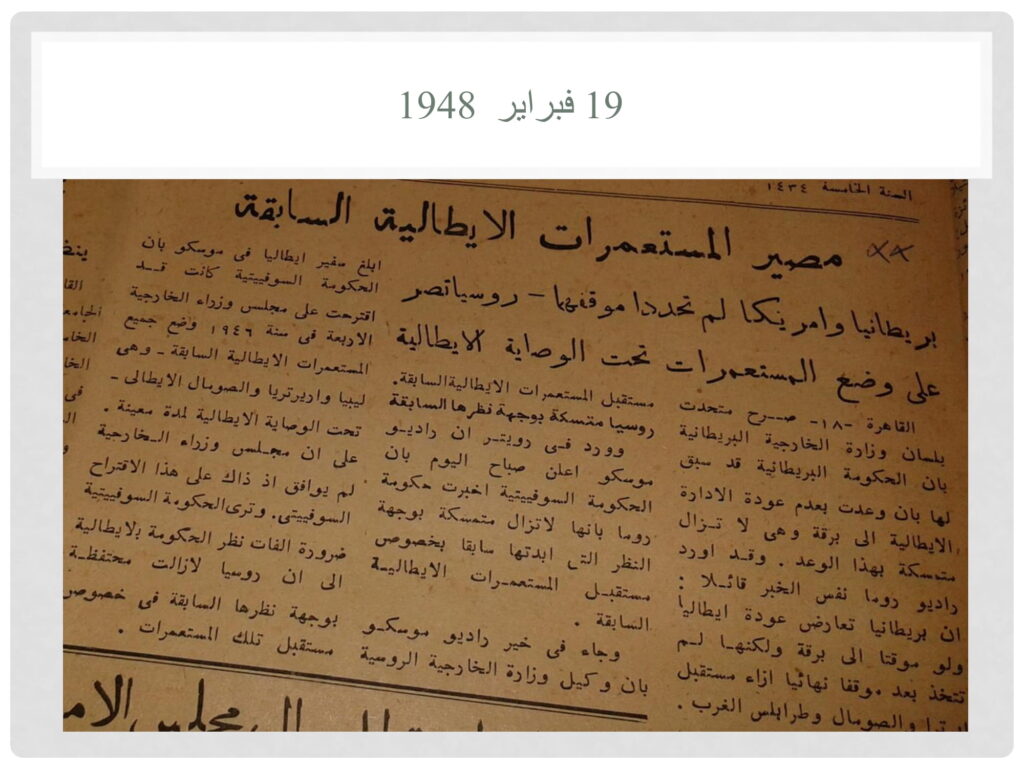 19 فبراير 1948
السنة الخامسة ١٤٣٤
مصير المستعمرات الايطالية السابقة
بريطانيا وامريكا لم تحددا موقفهما - روسيا تصر
على وضع المستعمرات تحت الوصاية الايطالية
القاهرة -١٨- صـرح متحدث
بلسان وزارة الخارجية البريطانية
بان الحكومة البريطانية قد سبق
لها بان وعدت بعدم عودة الادارة
الايطالية الى برقة وهى لا تـزال
متمسكة بهذا الوعد . وقـد اورد
راديو روما نفس الخبر قائـلا :
ان بريطانيا تعارض عودة ايطاليا
ولو موقتا الى برقة ولكنهـا لـم
تتخذ بعد موقفا نهائيا ازاء مستقبل
والصومال وطرابلس الغرب .
مستقبل المستعمرات الايطالية السابقة.
روسيا متمسكة بوجهة نظرها السابقة
وورد فـى رويتـر ان راديـو
موسكو اعلن صباح اليوم بان
الحكومة السوفييتية اخبرت حكومة
روما بانها لاتزال متمسكة بوجهة
النظر التى ابدتها سابقا بخصوص
مستقبـل المستعمـرات الايطاليـة
السابقة .
وجاء فى خبر راديو موسكـو
بان وكيل وزارة الخارجية الروسية
ابلغ سفير ايطاليا فى موسكو بان
الحكومة السوفييتية كانت قـد
اقترحت على مجلس وزراء الخارجية
الاربعة فى سنة ١٩٤٦ وضع جميع
المستعمرات الايطالية السابقة ـ وهى
ليبيا واريتريا والصومال الايطالى -
تحت الوصاية الايطالية لمدة معينة .
على ان مجـلس وزراء الخـارجية
لم يوافق اذ ذاك على هذا الاقتراح
السوفييتى. وترى الحكومة السوفييتية
ضرورة الفات نظر الحكومة الايطالية
الى ان روسيا لازالت محتفظـة
بوجهة نظرها السابقة فى خصوص
مستقبل تلك المستعمرات .
مجلس الامن